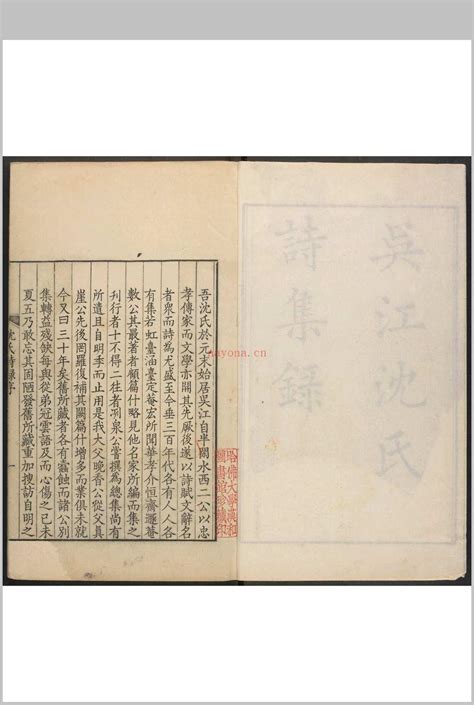 吳江沈氏
詩集錄
吾沈氏於元末始居吳江自半閒水西二公以忠
孝傳家而文學亦開其先厥後遂以詩賦文辭名
者衆而詩為尤盛至今垂三百年代各有人人各
有集若虹臺涵臺定菴宏所聞華孝介恒齋遯菴
數公其最著者顧篇什略見他名家所編其全集
刊行者十不得二往者冽泉公嘗撰為總集尚有
所遺且自明季而止用是我大父晚香公從父具
崖公先後罔羅復補其闕篇什增多而業俱未就
今又曰三十年矣舊所藏者各有蠹蝕而諸公別
集轉益殘缺每與從弟冠雲語及而心傷之己未
夏五乃敢忘其固陋發舊所藏重加搜訪自明之
沈氏詩錄序
一
哈佛大學漢和
圖書館珍藏印
ayona.cn